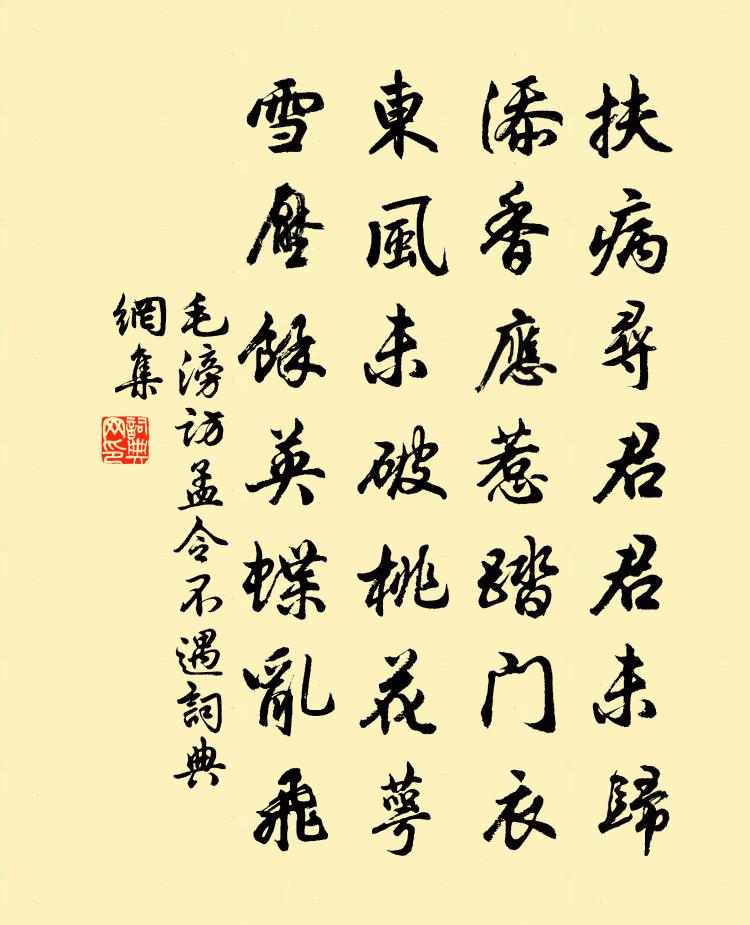 扶病尋君君未歸
添香應惹踏門衣
東風未破桃花萼
雪壓餘英蝶亂飛
毛滂訪孟令不遇詞典
網集
詞典网印